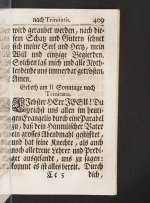 nach Trinitatis. 409
wird geraubet werden, nach die-
sen Schatz und Gütern sehnet
sich meine Seel und Hertz, mein
Will und einzige Begierden.
Solches laß mich und alle Noth-
leidende
Amen.
Gebeth am II Sonntage nach
Trinitatis.
HErr JEsu! Du
vergleichst uns allen im heuti-
gen Evangelio durch eine Parabel
zu, daß dein Himmlischer Vater
ein grosses Abendmahl gestifftet,
und hat seine Knechte, als auch
noch alle treue Lehrer und Predi-
ger ausgesandt, uns zu sagen:
kommt es ist alles bereit. Durch
Cc 5 dich,